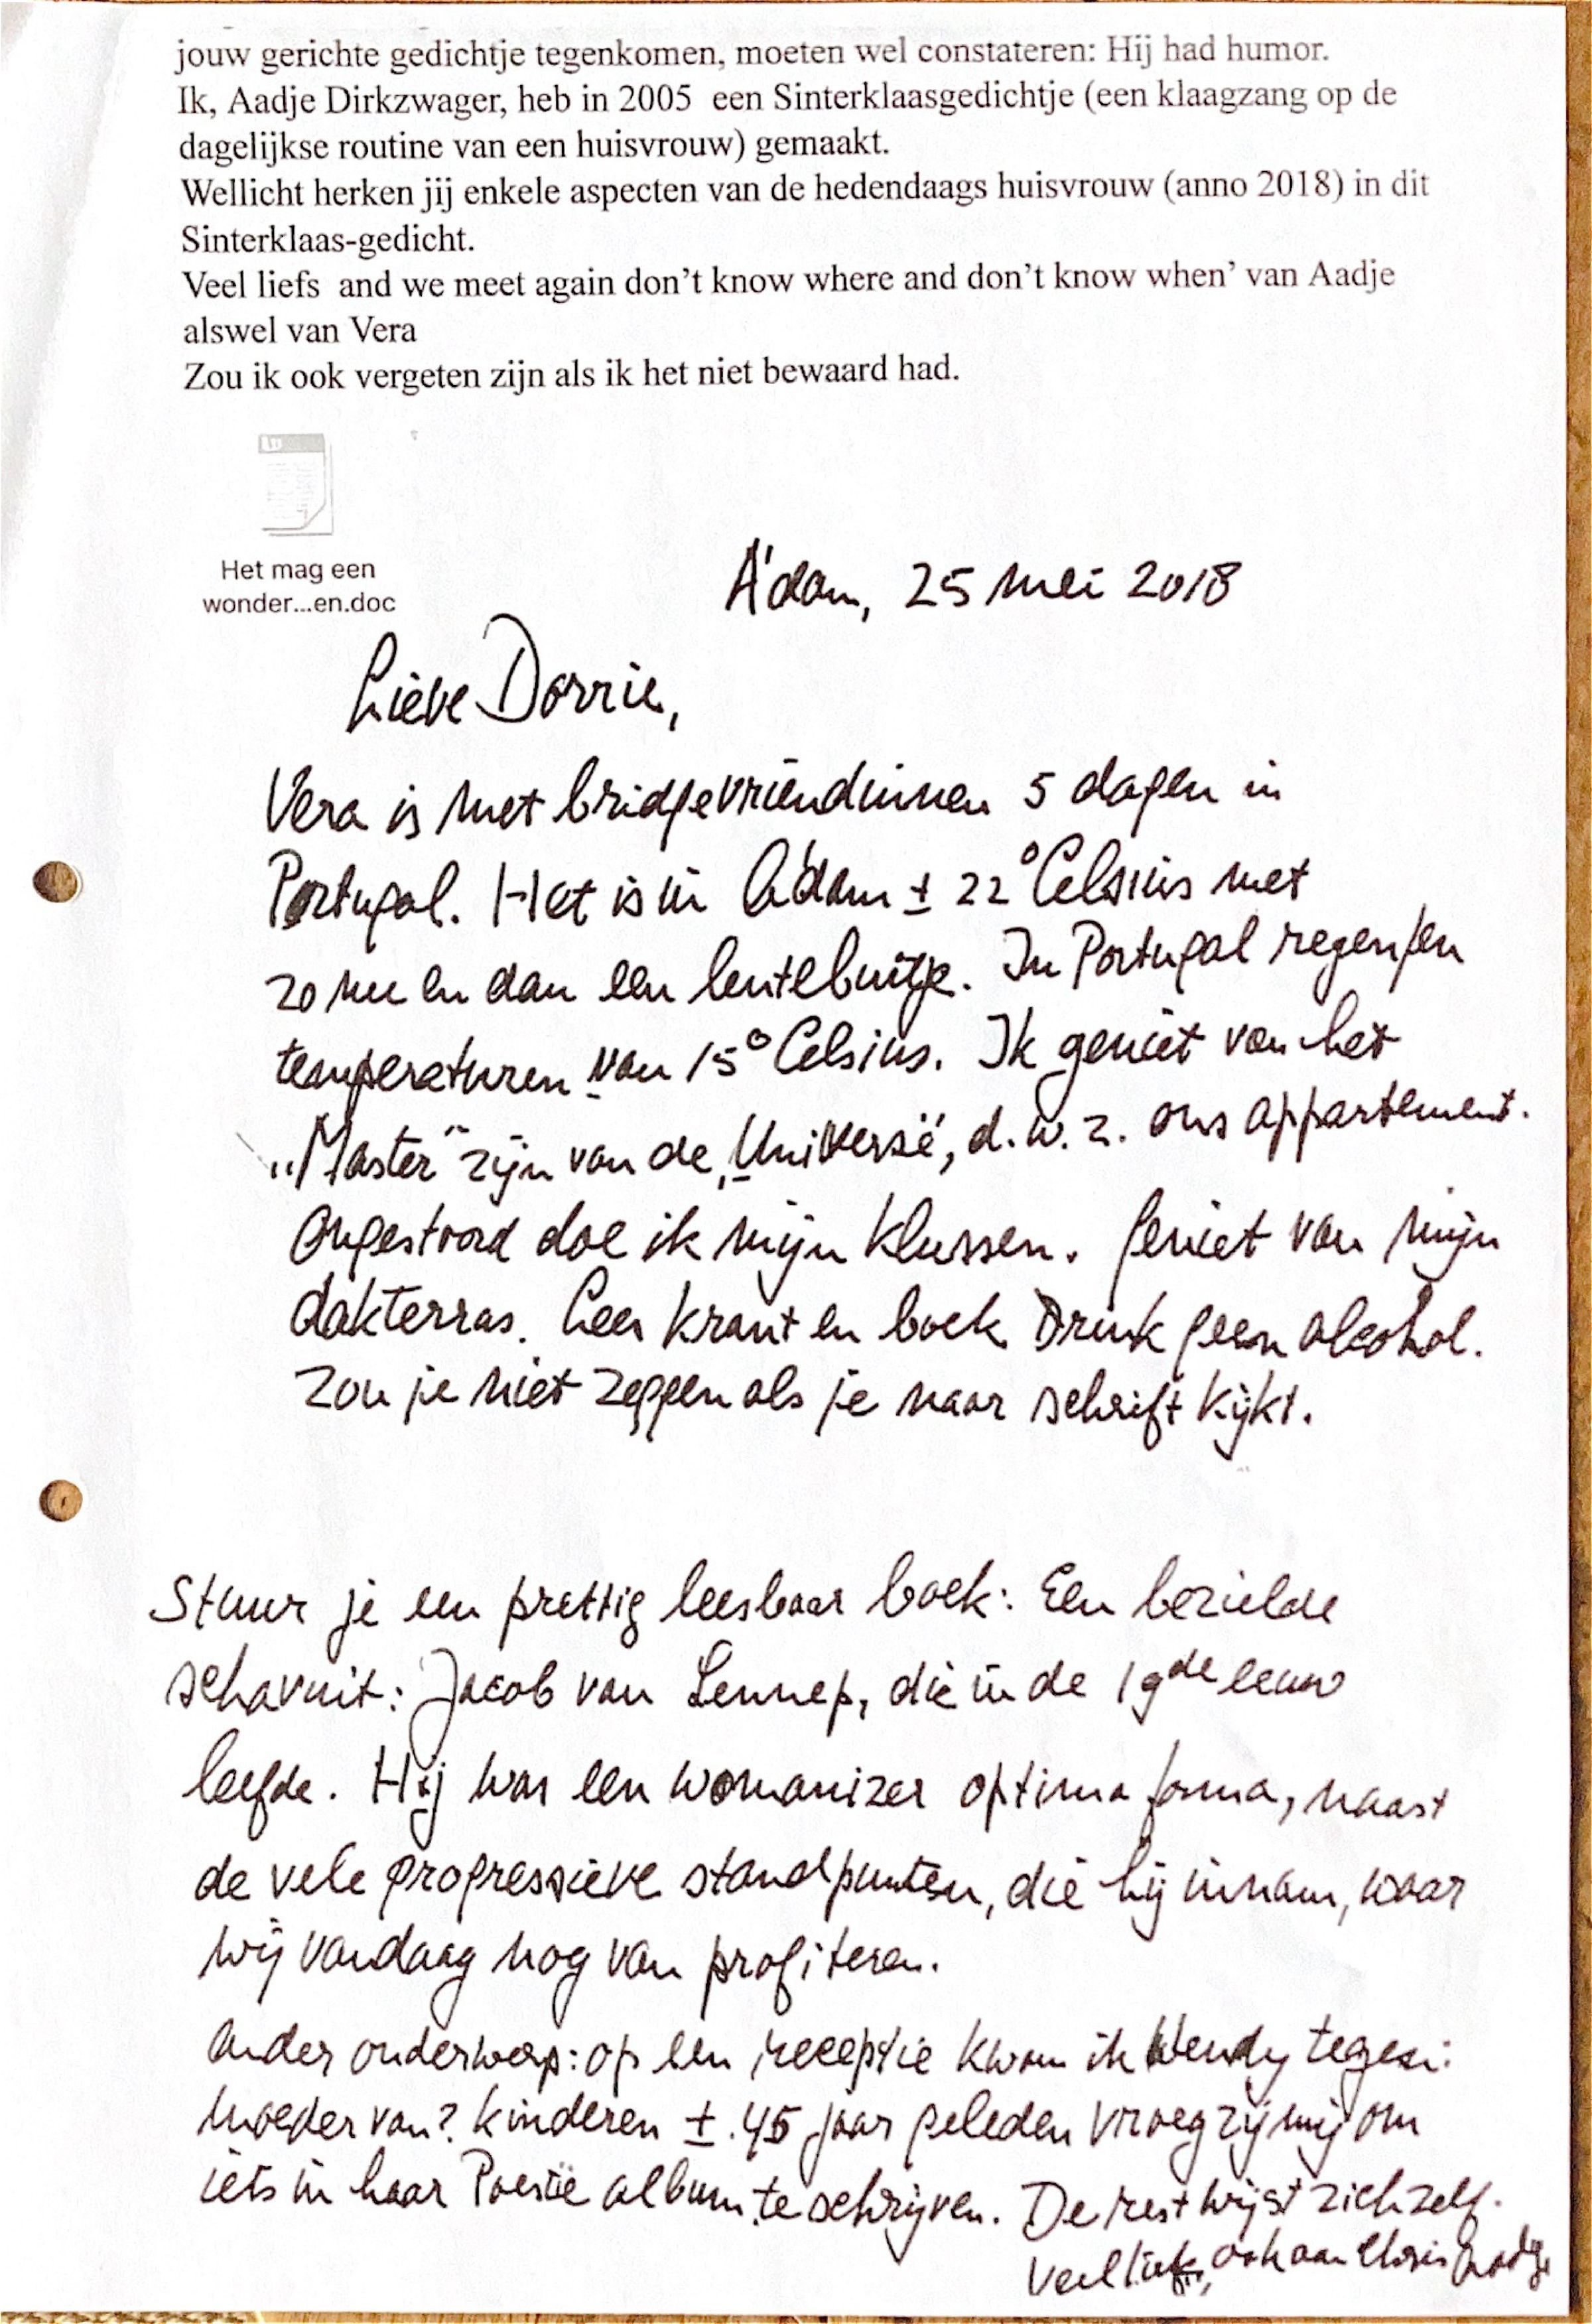 jouw gerichte gedichtje tegenkomen, moeten wel constateren: Hij had humor.
Ik, Aadje Dirkzwager, heb in 2005 een Sinterklaasgedichtje (een klaagzang op de
dagelijkse routine van een huisvrouw) gemaakt.
Wellicht herken jij enkele aspecten van de hedendaags huisvrouw (anno 2018) in dit
Sinterklaas-gedicht.
Veel liefs and we meet again don't know where and don't know when' van Aadje
alswel van Vera
Zou ik ook vergeten zijn als ik het niet bewaard had.
Het mag een
wonder...en.doc
A'dam, 25 mei 2018
Lieve Dorrie,
Vera is met bridgevriendinnen 5 dagen in
Portugal. Het is in A'dam ± 22° Celsius met
zo nu en dan een lentebuitje. In Portugal regen en
temperaturen van 15° Celsius. Ik geniet van het
„Master" zijn van de „Universe", d.w.z. ons appartement.
Ongestoord doe ik mijn klussen. Geniet van mijn
dakterras. Lees krant en boek. Drink geen alcohol.
Zou je niet zeggen als je naar schrift kijkt.
Stuur je een prettig leesbaar boek: Een bezielde
schavuit: Jacob van Lennep, die in de 19de eeuw
leefde. Hij was een womanizer optima forma, naast
de vele progressieve standpunten, die hij innam, waar
wij vandaag nog van profiteren.
Ander onderwerp: op een receptie kwam ik Wendy tegen:
moeder van? kinderen ±. 45 jaar geleden vroeg zij mij om
iets in haar Poesie album te schrijven. De rest wijst zichzelf.
Veel liefs, ook aan Chris Aadje